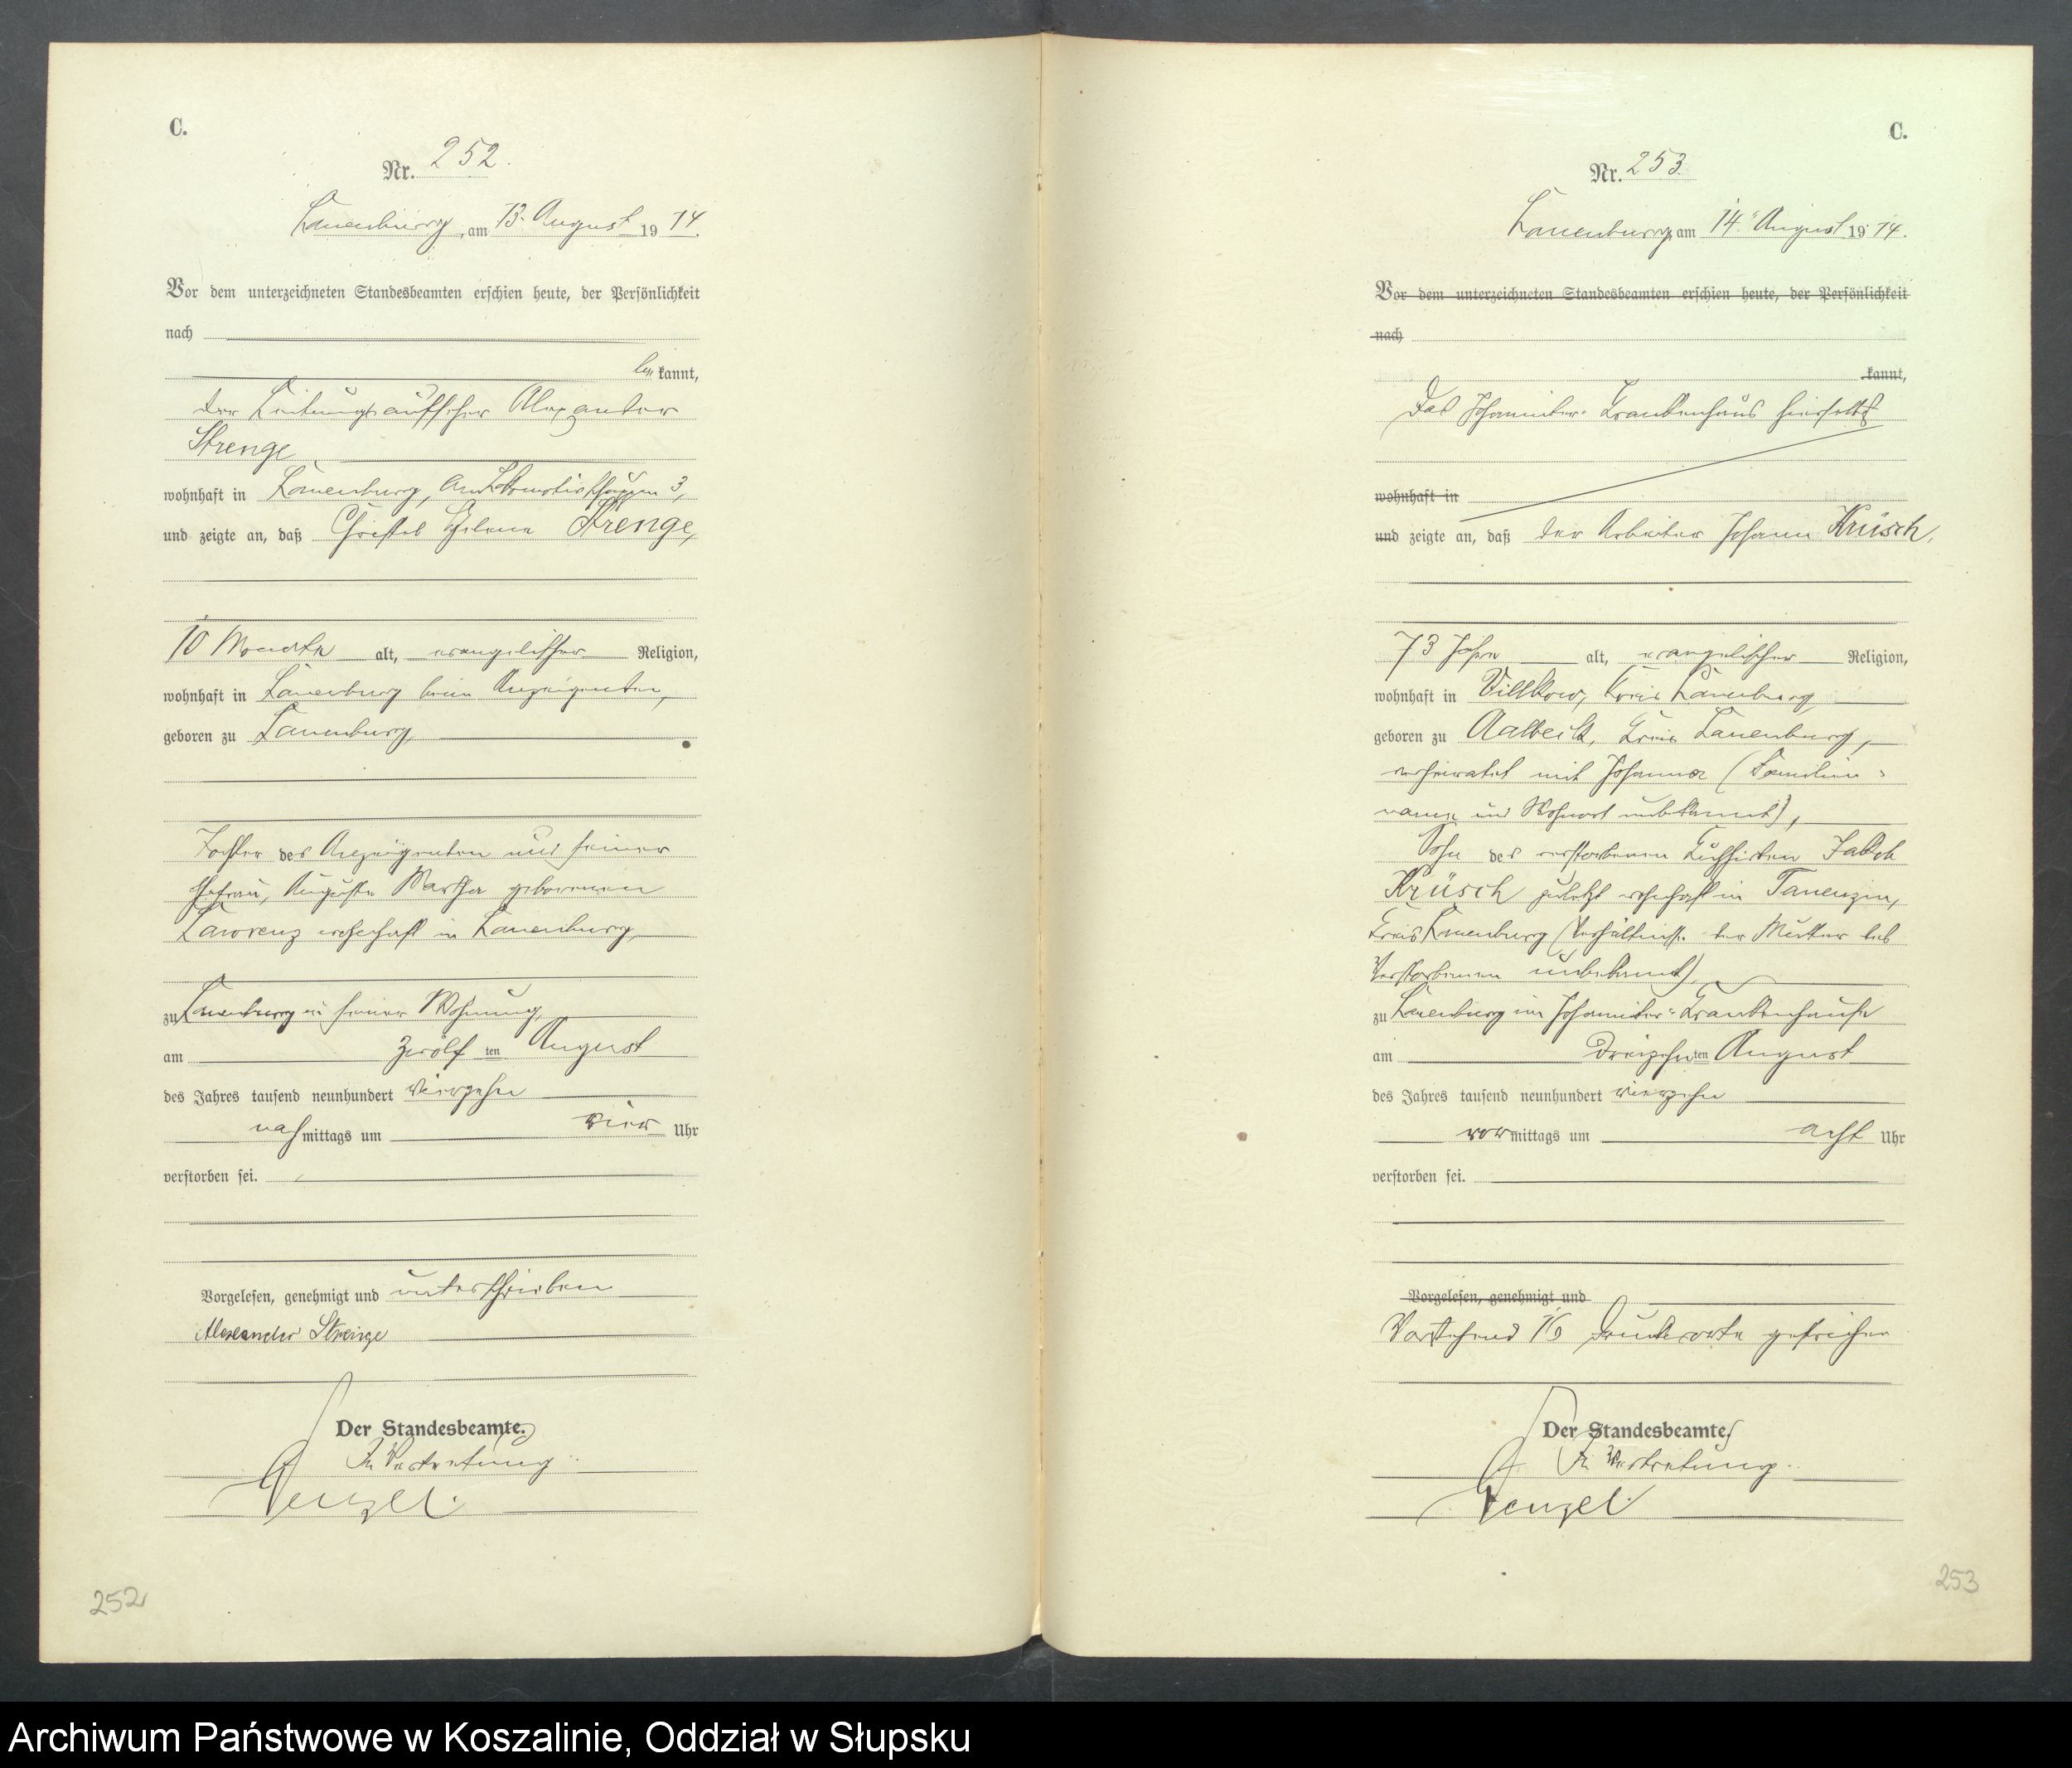 C.
Nr. 252.
Lauenburg, am 13. August 19 14.
Vor dem unterzeichneten Standesbeamten erschien heute, der Persönlichkeit
nach
be kannt,
der Leitungsaufseher Alexander
Strenge,
wohnhaft in Lauenburg, 3,
und zeigte an, daß Christel Helene Strenge,
10 Monate alt, evangelischer Religion,
wohnhaft in Lauenburg beim Anzeigenden,
geboren zu Lauenburg,
Tochter des Anzeigenden und seiner
Ehefrau, Auguste Martha geborenen
Lawrenz wohnhaft in Lauenburg,
zu Lauenburg in seiner Wohnung,
am zwölf ten August
des Jahres tausend neunhundert vierzehn
nach mittags um vier Uhr
verstorben sei.
Vorgelesen, genehmigt und unterschrieben
Alexander Strenge
Der Standesbeamte.
In Vertretung.
Wenzel.
252
C.
Nr. 253
Lauenburg, am 14. August 19 14.
Vor dem unterzeichneten Standesbeamten erschien heute, der Persönlichkeit
nach
kannt,
Das Johanniter-Krankenhaus hierselbst
wohnhaft in
und zeigte an, daß der Arbeiter Johann Krüsch,
73 Jahre alt, evangelischer Religion,
wohnhaft in Villkow, Kreis Lauenburg,
geboren zu Aalbeck, Kreis Lauenburg,
verheiratet mit Johanna (Familien-
name und Wohnort unbekannt),
Sohn des verstorbenen Kuhhirten Jakob
Krüsch zuletzt wohnhaft in Tauenzin,
Kreis Lauenburg (Verhältnisse der Mutter des
Verstorbenen unbekannt),
zu Lauenburg im Johanniter-Krankenhause
am dreizehn ten August
des Jahres tausend neunhundert vierzehn
vor mittags um acht Uhr
verstorben sei.
Vorgelesen, genehmigt und
Vorstehend Druckworte gestrichen
Der Standesbeamte.
In Vertretung.
Wenzel.
253
Archiwum Państwowe w Koszalinie, Oddział w Słupsku